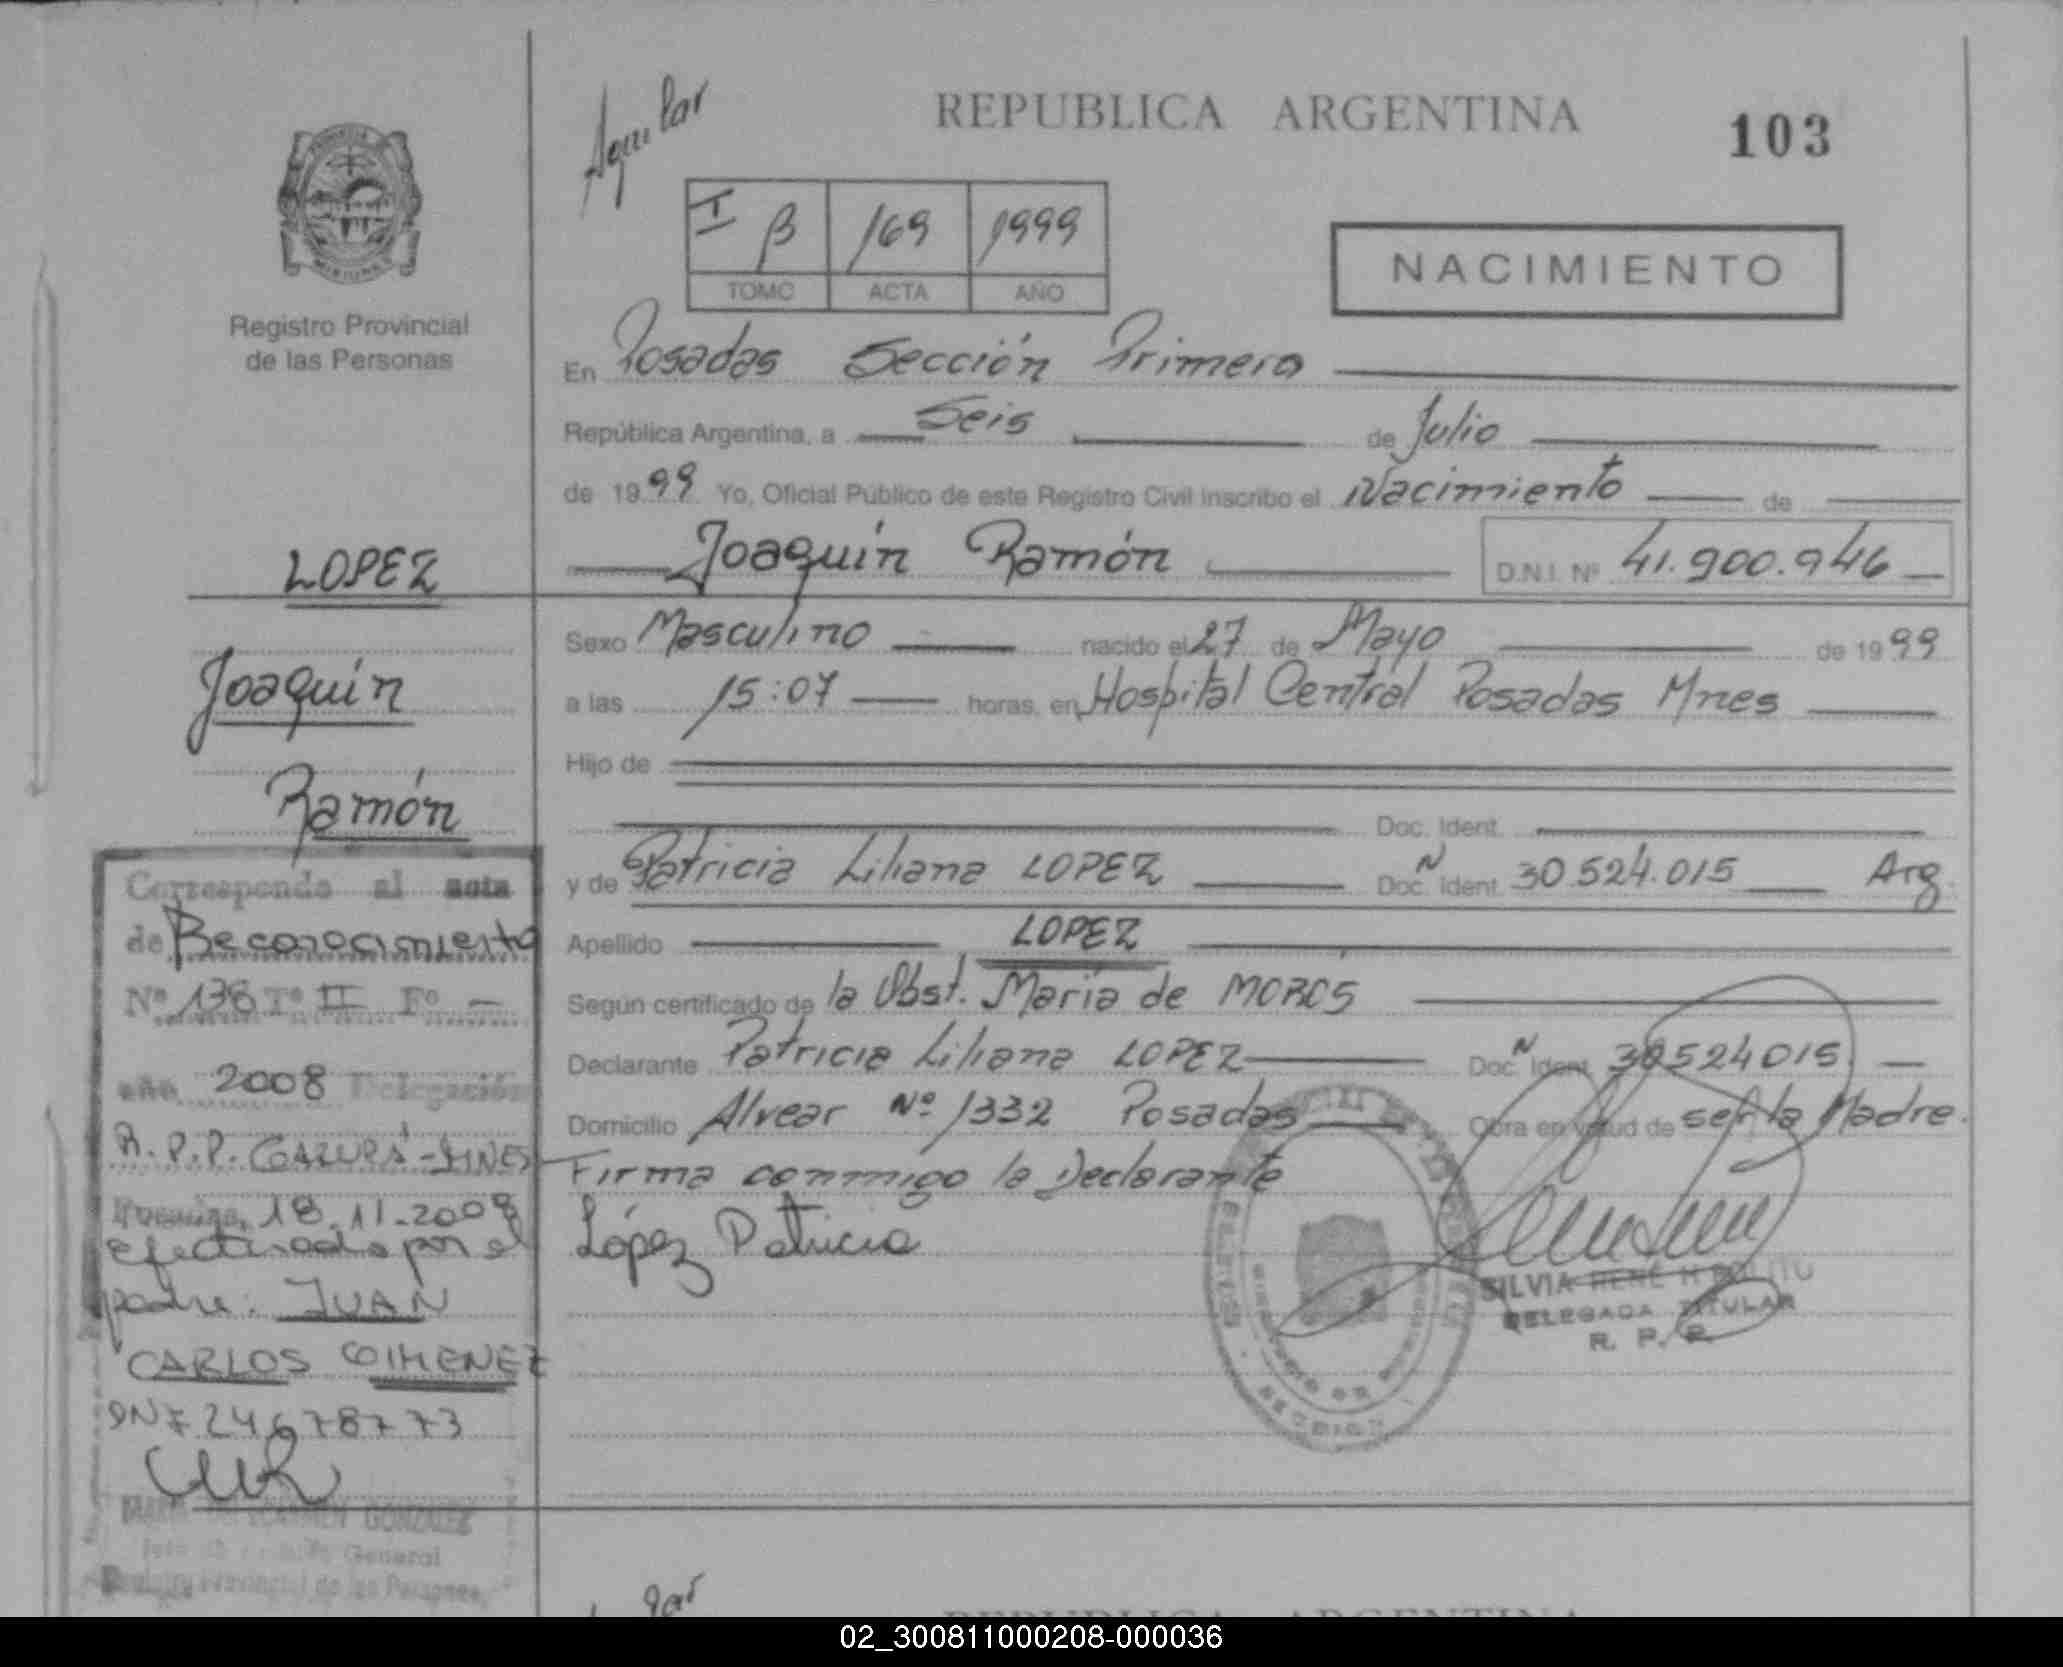 Aguilar
REPUBLICA ARGENTINA
103
I B 169 1999
TOMO ACTA AÑO
NACIMIENTO
Registro Provincial
de las Personas
En Posadas Sección Primera
República Argentina, a Seis de Julio
de 1999 Yo, Oficial Público de este Registro Civil inscribo el Nacimiento de
Joaquín Ramón D.N.I. Nº 41.900.946
Sexo Masculino nacido el 27 de Mayo de 1999
a las 15:07 horas, en Hospital Central Posadas Mnes
Hijo de
Doc. Ident.
y de Patricia Liliana LOPEZ Doc. N Ident. 30.524.015 Arg.
Apellido LOPEZ
Según certificado de la Obst. María de MOROS
Declarante Patricia Liliana LOPEZ Doc. N Ident. 30524015
Domicilio Alvear Nº 1332 Posadas Obra en virtud de ser la Madre.
Firma conmigo la Declarante
López Patricia
SILVIA RENÉ
DELEGADA TITULAR
R. P. P.
LOPEZ
Joaquín
Ramón
Corresponde al acta
de Reconocimiento
Nº 136 Tº II Fº -
año 2008 Delegación
R.P.P. GARUPÁ-MNES
Posadas, 18.11.2008
efectuado por el
padre: JUAN
CARLOS GIMENEZ
DNI 24678773
MARIA DEL CARMEN GONZALEZ
General
Registro Provincial de las Personas
REPUBLICA ARGENTINA
02_300811000208-000036